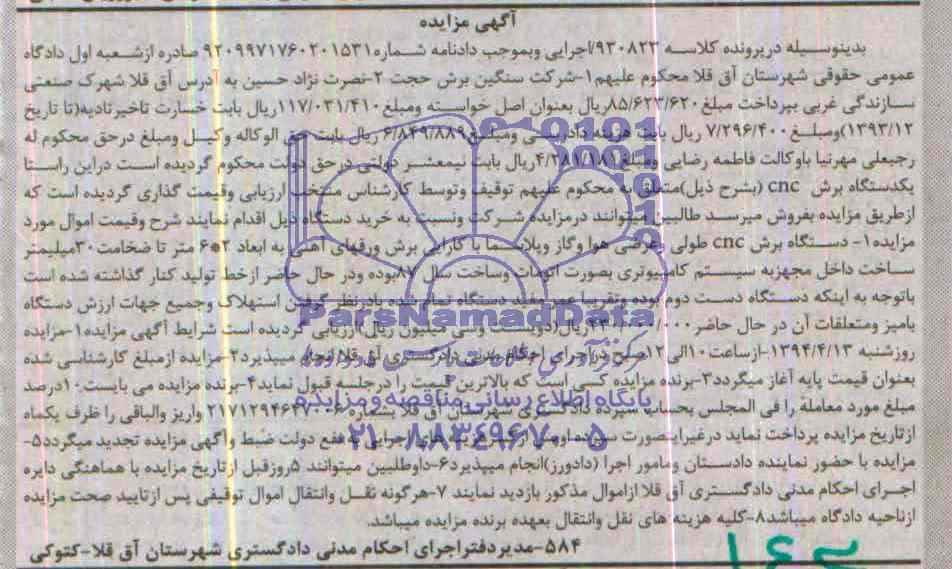 آگهی مزایده
بدینوسیله درپرونده کلاسه ۹۳۰۸۲۳/اجرایی وبموجب دادنامه شماره ۹۲۰۹۹۷۱۷۶۰۲۰۱۵۳۱ صادره ازشعبه اول دادگاه
عمومی حقوقی شهرستان آق قلا محکوم علیهم ۱-شرکت سنگین برش حجت ۲-نصرت نژاد حسین به آدرس آق قلا شهرک صنعتی
سازندگی غربی بپرداخت مبلغ ۸۵/۶۲۳/۶۲۰ریال بعنوان اصل خواسته ومبلغ ۱۱۷/۰۳۱/۴۱۰ریال بابت خسارت تاخیرتادیه(تا تاریخ
۱۳۹۳/۱۲)ومبلغ ۷/۲۹۶/۴۰۰ ریال بابت هزینه دادرسی ومبلغ ۶/۸۴۹/۸۸۹ ریال بابت حق الوکاله وکیل ومبلغ درحق محکوم له
رجبعلی مهرتیا باوکالت فاطمه رضایی ومبلغ ۴/۲۸۱/۱۸۱ریال بابت نیمعشر دولتی درحق دولت محکوم گردیده است دراین راستا
یکدستگاه برش cnc (بشرح ذیل)متعلق به محکوم علیهم توقیف وتوسط کارشناس منتخب ارزیابی وقیمت گذاری گردیده است که
ازطریق مزایده بفروش میرسد طالبین میتوانند درمزایده شرکت ونسبت به خرید دستگاه ذیل اقدام نمایند شرح وقیمت اموال مورد
مزایده ۱- دستگاه برش cnc طولی وعرضی هوا وگاز وپلاسما با کارایی برش ورقهای آهنی به ابعاد ۲*۶ متر تا ضخامت ۳۰میلیمتر
ساخت داخل مجهزبه سیستم کامپیوتری بصورت اتومات وساخت سال ۸۷بوده ودر حال حاضر ازخط تولید کنار گذاشته شده است
باتوجه به اینکه دستگاه دست دوم بوده وتقریبا عمر مفید دستگاه تمام شده بادرنظر گرفتن استهلاک وجمیع جهات ارزش دستگاه
بامیز ومتعلقات آن در حال حاضر ریال(دویست وسی میلیون ریال)ارزیابی گردیده است شرایط آگهی مزایده ۱-مزایده
روزشنبه ۱۳۹۴/۴/۱۳-ازساعت ۱۰الی۱۲صبح دراجرای احکام مدنی دادگستری آق قلا انجام میپذیرد۲-مزایده ازمبلغ کارشناسی شده
بعنوان قیمت پایه آغاز میگردد۳-برنده مزایده کسی است که بالاترین قیمت را درجلسه قبول نماید۴-برنده مزایده می بایست ۱۰درصد
مبلغ مورد معامله را فی المجلس بحساب سپرده دادگستری شهرستان آق قلا بشماره واریز والباقی را ظرف یکماه
ازتاریخ مزایده پرداخت نماید درغیراینصورت سپرده او پس از کسر هزینه های اجرایی به نفع دولت ضبط وآگهی مزایده تجدید میگردد۵-
مزایده با حضور نماینده دادستان ومامور اجرا (دادورز)انجام میپذیرد۶-داوطلبین میتوانند ۵روزقبل ازتاریخ مزایده با هماهنگی دایره
اجرای احکام مدنی دادگستری آق قلا ازاموال مذکور بازدید نمایند ۷-هرگونه نقل وانتقال اموال توقیفی پس ازتایید صحت مزایده
ازناحیه دادگاه میباشد۸-کلیه هزینه های نقل وانتقال بعهده برنده مزایده میباشد.
۵۸۴-مدیردفتراجرای احکام مدنی دادگستری شهرستان آق قلا-کتوکی
ParsNamadData
پایگاه اطلاع رسانی مناقصه و مزایده
۰۲۱-۸۸۳۴۹۶۷۰-۵